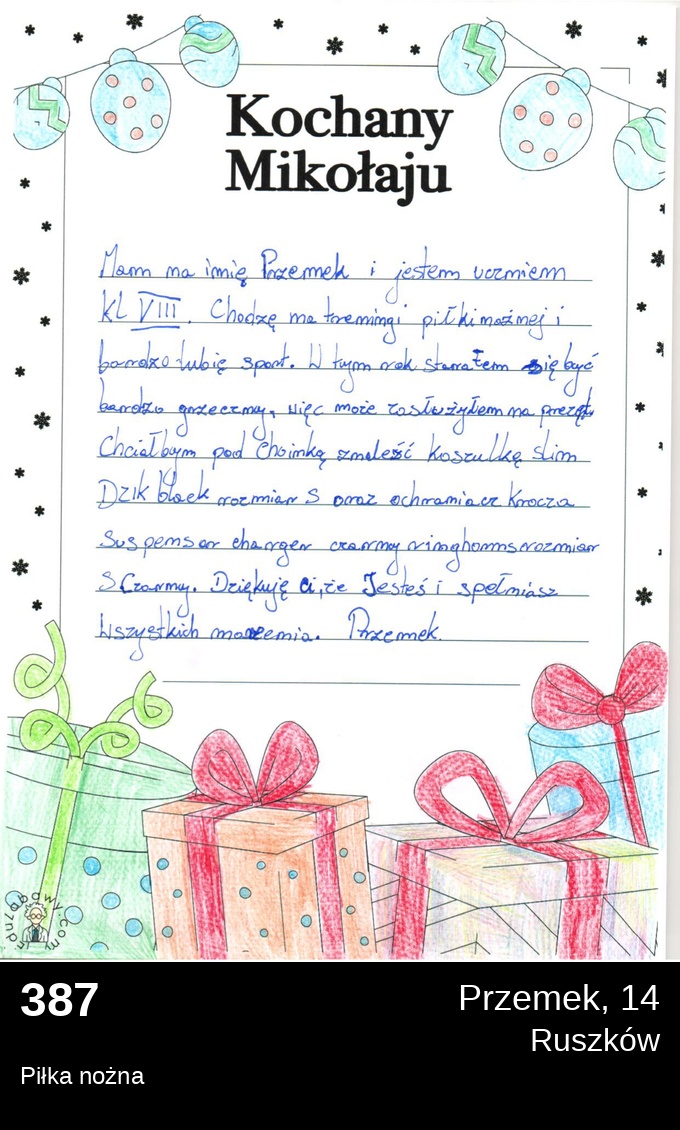 Kochany
Mikołaju
Mam na imię Przemek i jestem uczniem
kl VIII. Chodzę na treningi piłki nożnej i
bardzo lubię sport. W tym rok starałem się być
bardzo grzeczny, więc może zasłużyłem na prezęt.
Chciałbym pod choinką znaleść koszulkę slim
Dzik black rozmiar S oraz ochraniacz krocza
suspensor charger czarny ringhorns rozmiar
S Czarny. Dziękuję Ci, że Jesteś i spełniasz
wszystkich marzenia. Przemek.
387
Przemek, 14
Ruszków
Piłka nożna